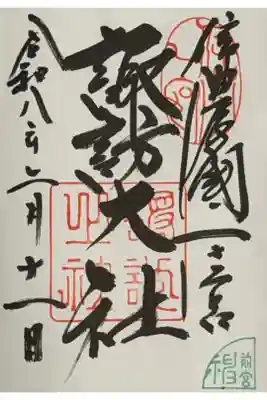 信濃國一之宮
諏訪大社
令和八年六月十一日
諏訪
之社
前宮
拝